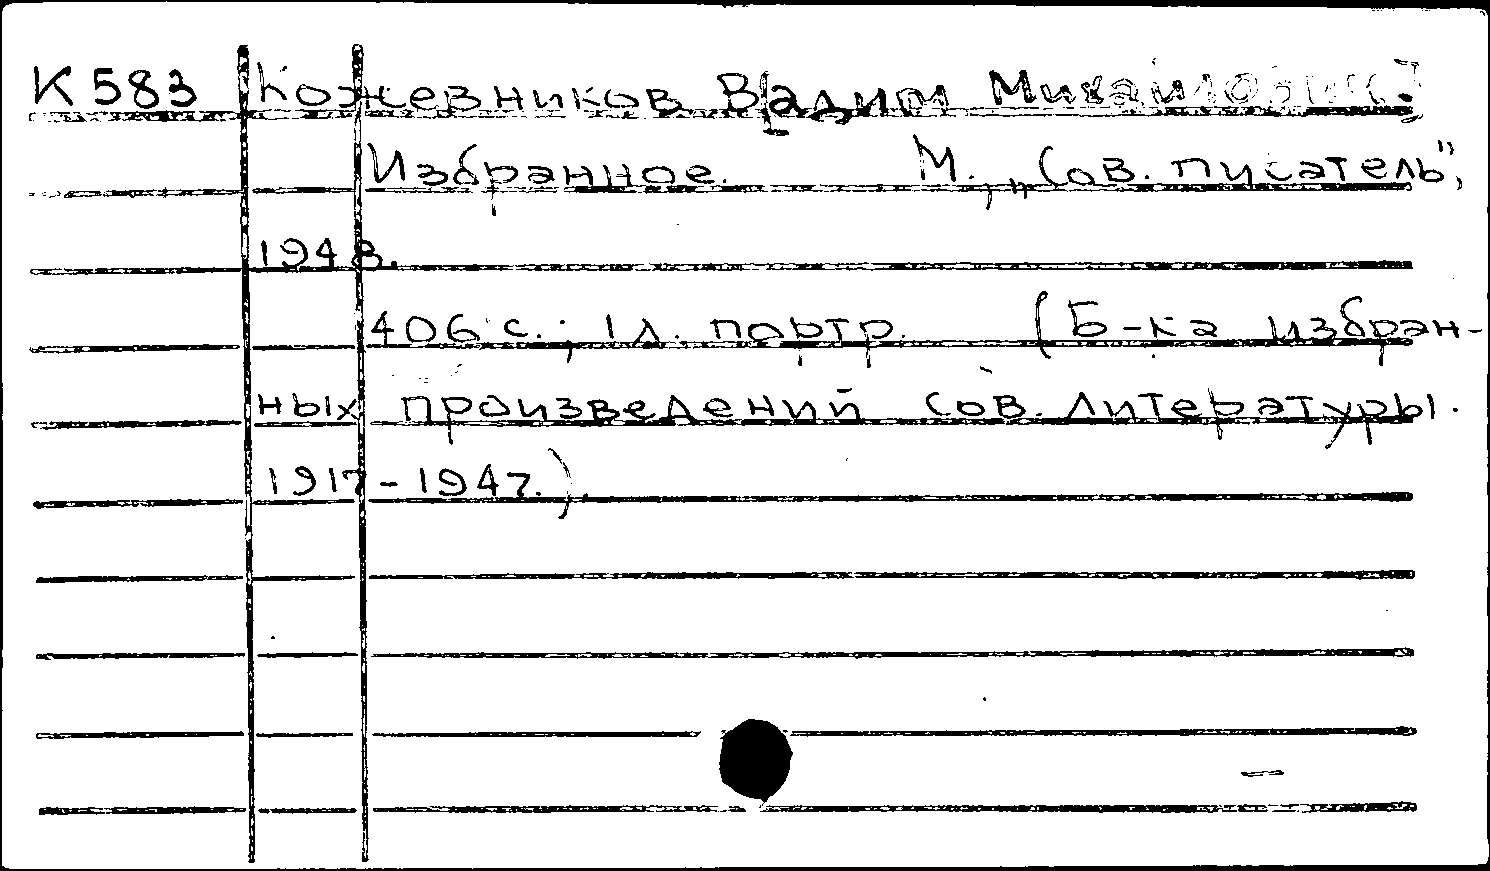 К583 Кожевников В[адим Михайлович.]
Избранное. М., „Сов. писатель",
1948.
406 с.; 1 л. портр. (Б-ка избран-
ных произведений сов. литературы.
1917-1947.)